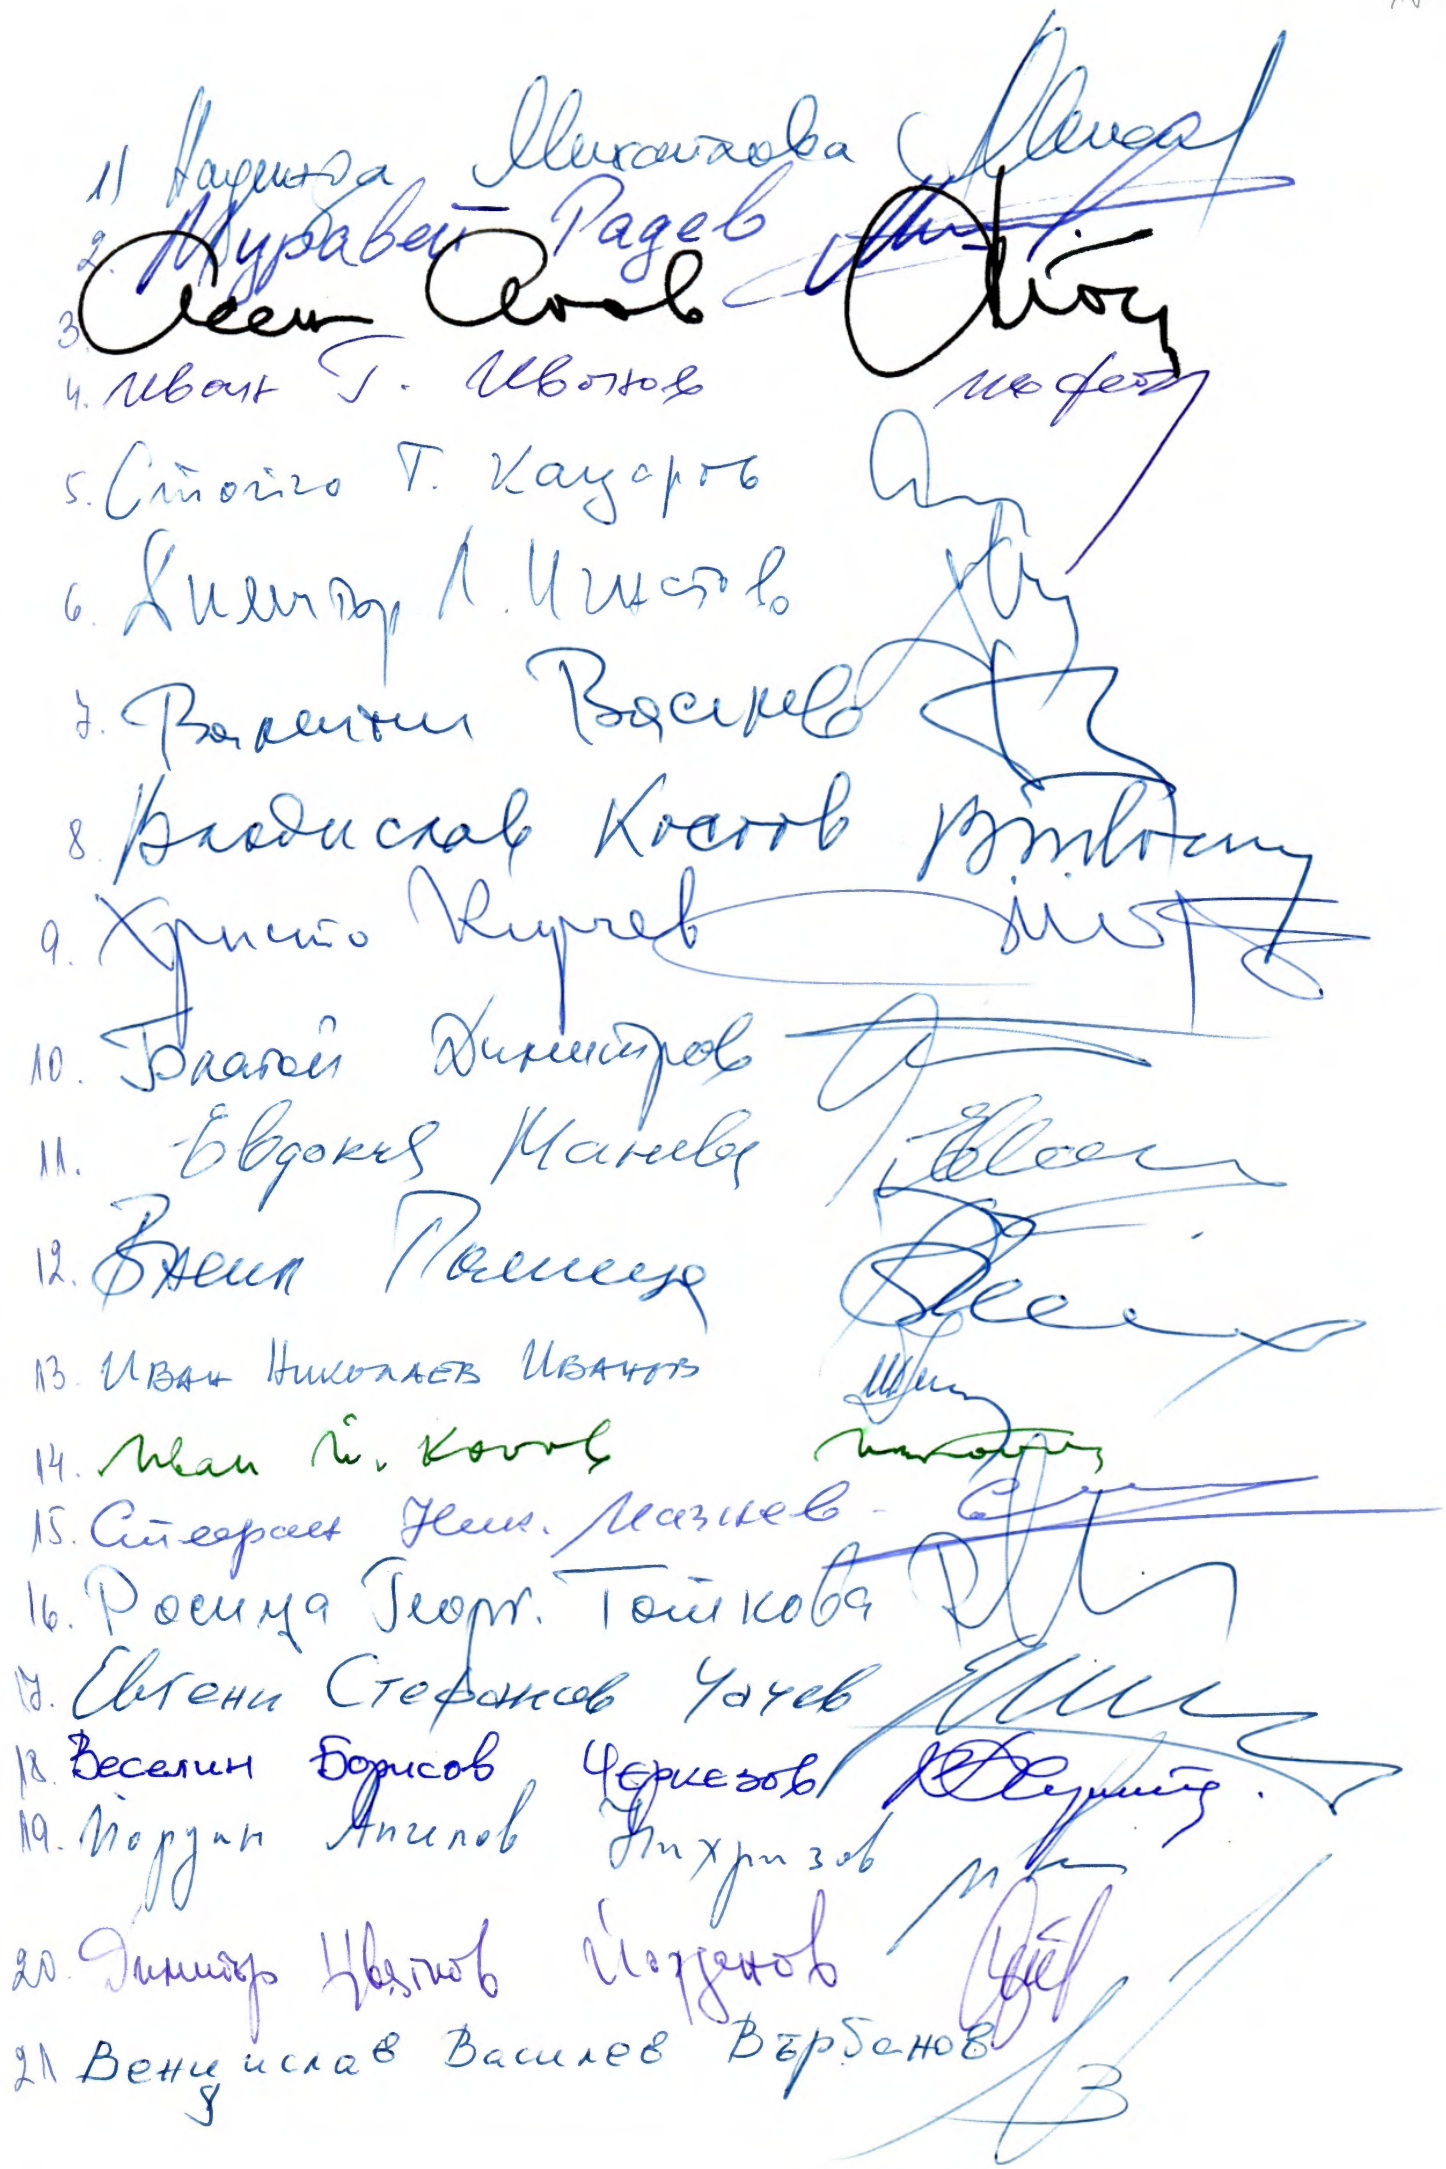 1) Надежда Михайлова
2. Муравей Радев
3. Асен Агов
4. Иван Г. Иванов
5. Стойчо Т. Кацаров
6. Димитър Л. Игнатов
7. Валентин Василев
8. Владислав Костов
9. Христо Кирчев
10. Благой Димитров
11. Евдокия Манева
12. Васил Паница
13. Иван Николаев Иванов
14. Иван Й. Костов
15. Стефан Ник. Мазнев
16. Росица Георг. Тоткова
17. Евгени Стефанов Чачев
18. Веселин Борисов Черкезов
19. Йордан Ангелов Нихризов
20. Димитър Цвятков Йорданов
21 Венцислав Василев Върбанов